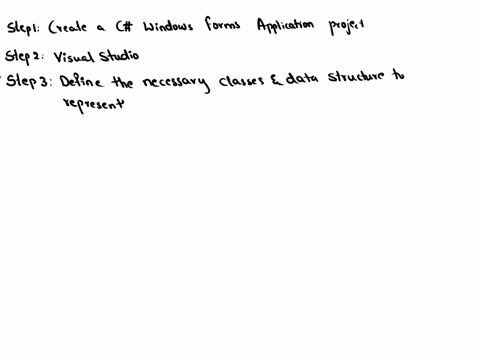 Step1: Create a C# Windows forms Application project
Step 2: Visual Studio
Step 3: Define the necessary classes & data structure to
represent